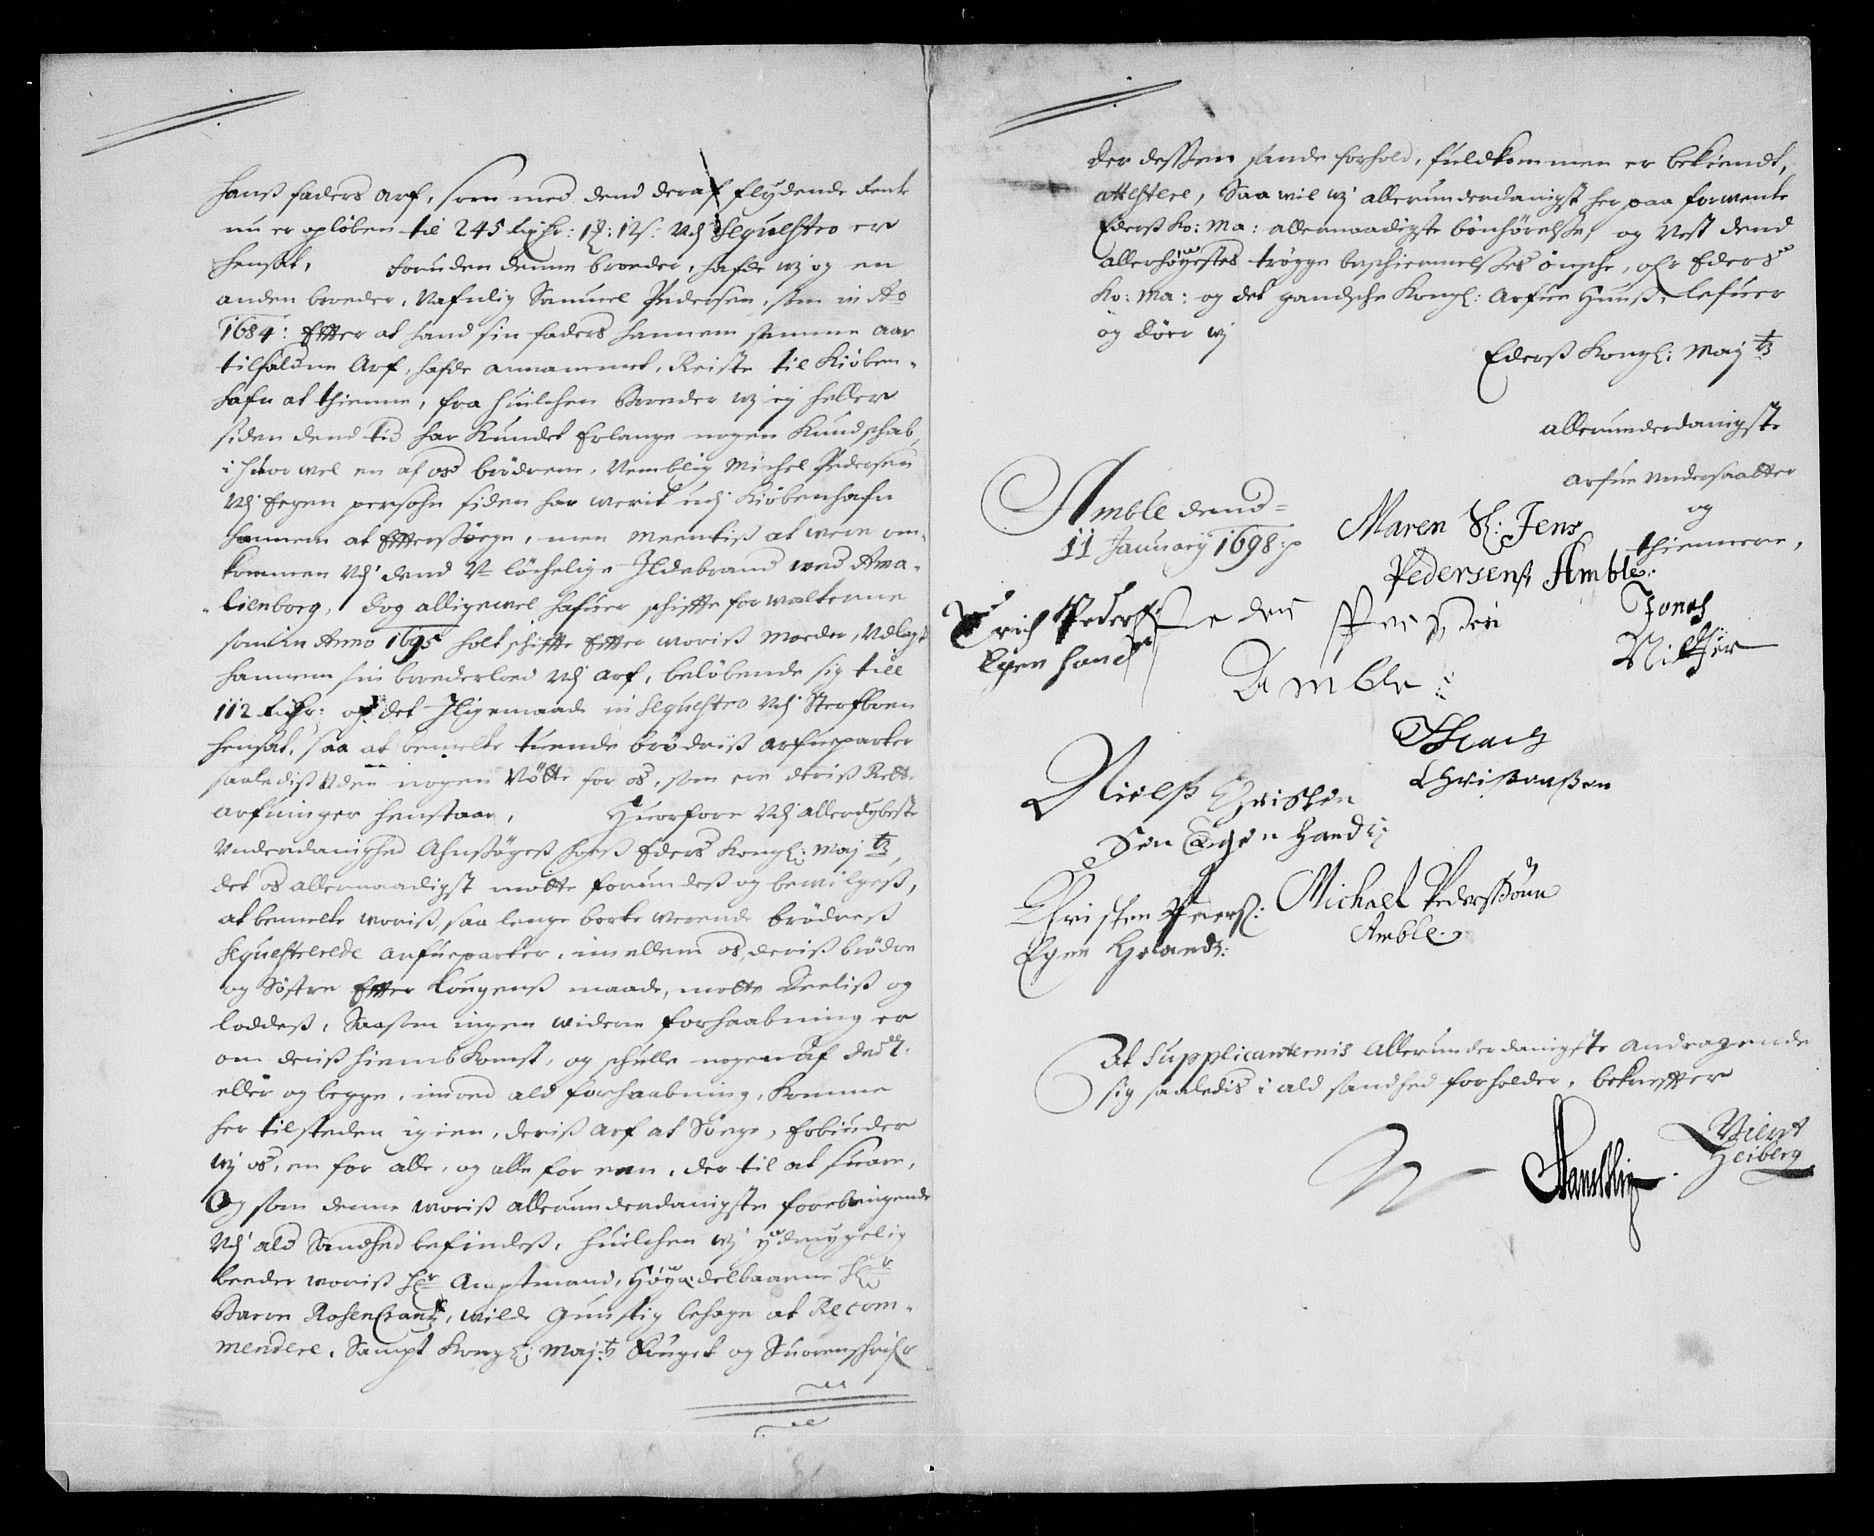 hanß faders arf, som med dend deraf flydende Rente
nu er opløben til 245 Rixdr: 1 : 12 s: Udj Sequestro er
hensat, foruden denne broeder, hafde wj og en
anden broeder, Nafnlig Samuel Pedersen, som in Ao
1684: Effter at hand sin faders hannem samme aar
tilfaldne Arf, hafde annammet, Reiste til Kiøben-
hafn at thienne, fra huilchen Broeder wj ej heller
siden dend tid har Kundet Erlange nogen Kundschab,
ihuor wel en af os brødrene, Nemblig Michel Pedersen
Udj Egen persohn siden har werit udj Kiøbenhafn
hannem at Effterssøege, men Meentiß at were om-
kommen Udj dend U-löchelige Ildebrand wed Ama-
lienborg, dog alligewel hafuer schiffte forwalterne
som in Anno 1695 holt schiffte Effter woriß Moeder, Udlagt
hannem sin broederloed Udj Arf, beløbende sig till
112 Rixdr: og det Iligemaade in Sequestro Udj Sterfboen
hensat, saa at bemelte tuende brødriß arfueparter
saalediß Uden nogen Nötte for os, som ere deriß Rette
arfuinger henstaar, Huorfore Udj allerdybeste
Underdanighed Ahnsøgeß hoeß Eders Kongl: Maj tz,
det os allernaadigst motte forundeß og bewilgeß,
at bemelte woriß, saa lenge borte werende brödreß
Sequesterede arfueparter, imellem os, deriß brödre
og Söstre Effter Lougenß maade, motte Deeliß og
loddeß, Saasom ingen widere forhaabning er
om deriß hiembkomst, og schulle nogen af dend
eller og begge, imod ald forhaabning, komme
her tilsteden igien, deriß arf at Søege, forbinder
wj os, en for alle, og alle for een, der til at suare,
Og som denne woriß allerunderdanigste forebringende
Udj ald Sandhed befindeß, huilchen wj ydmygelig
beeder woriß Hr Amptmand, Höyædelbaarne Hr
Baron RosenCrantz, wilde Gunstig behage at Recom-
mendere, Sampt Kongl: Maj:tz Fouget og Suorenschrifr
der desßen sande forhold, fuldkommen er bekiendt,
attestere, Saa wil wj allerunderdanigst her paa forwente
Ederß Ko: Ma: allernaadigste bönhörelsse, og Nest dend
allerhöyestes trögge beschiermelsses ønsche, ofr Eders
Ko: Ma: og det gandsche Kongl: Arfue Huuß, lefuer
og döer wj
Ederß Kongl: Maj tz
allerunderdanigste
arfue Undersaatter
og
thiennere,
Amble dend
11 January 1698:
Maren Sl: Jens
Pedersenß Amble:
Erich Pederß
Egen hand
Peder
Amble
Jonas
Nilßør
Niels Christen
Sen Egen Hand
Christenßen
Christen Peders:
Egen Haand:
Michael Pedersßönn
Amble
At Supplicanternis Allerunderdanigste andragende
sig saaledis i ald sandhed forholder, bekreffter
Villat
Heiberg